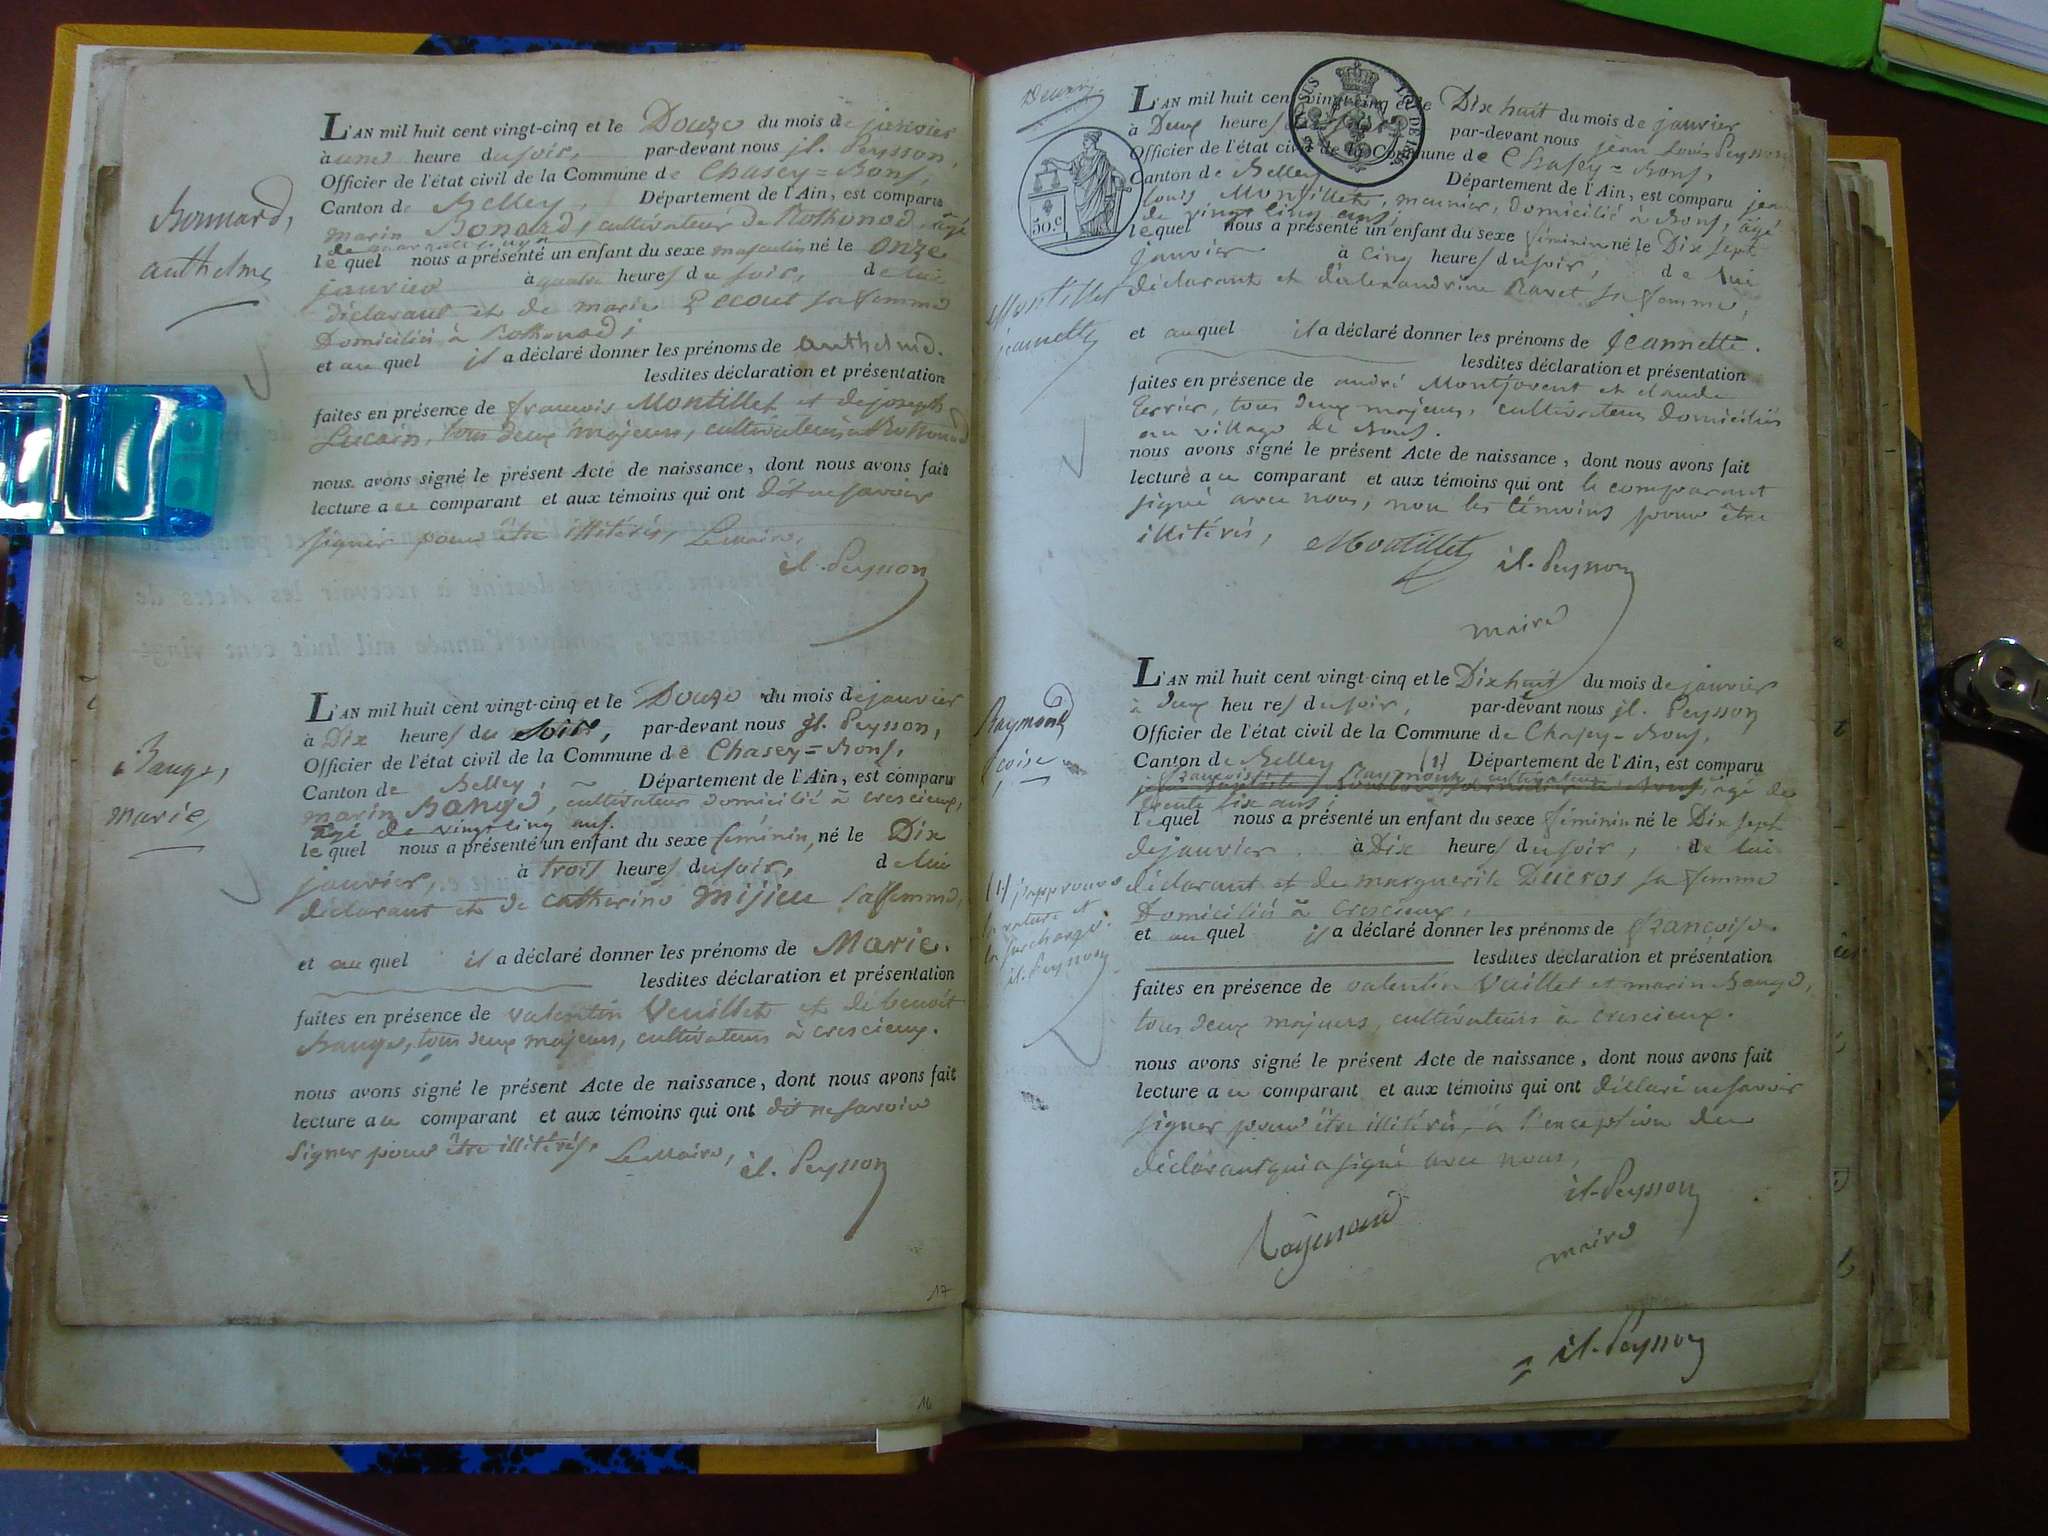 Bonnard,
anthelme
L'AN mil huit cent vingt-cinq et le Douze du mois de janvier
à une heure du soir, par-devant nous jl. Peysson,
Officier de l'état civil de la Commune de Chasey=Bons,
Canton de Belley, Département de l'Ain, est comparu
marin Bonard, cultivateur de Rothonod, âgé
de
lequel nous a présenté un enfant du sexe masculin né le onze
janvier à quatre heures du soir, de lui
déclarant et de marie Ecout sa femme
Domiciliés à Rothonod;
et auquel il a déclaré donner les prénoms de anthelme.
lesdites déclaration et présentation
faites en présence de francois Montillet et de joseph
Lucain, tous deux majeurs, cultivateurs à Rothonod
nous avons signé le présent Acte de naissance, dont nous avons fait
lecture a ce comparant et aux témoins qui ont dit ne savoir
signer pour être illitérés, Le maire,
jl. Peysson
Bauge,
marie,
L'AN mil huit cent vingt-cinq et le Douze du mois de janvier
à Dix heures du soir, par-devant nous jl. Peysson,
Officier de l'état civil de la Commune de Chasey=Bons,
Canton de Belley, Département de l'Ain, est comparu
marin Bauge, cultivateur domicilié à crescieux,
âgé de vingt cinq ans.
lequel nous a présenté un enfant du sexe féminin, né le Dix
janvier, à trois heures du soir, de lui
déclarant et de catherine mijieu sa femme,
et auquel il a déclaré donner les prénoms de Marie.
lesdites déclaration et présentation
faites en présence de valentin Veuillet et de benoit
Bauge, tous deux majeurs, cultivateurs à crescieux.
nous avons signé le présent Acte de naissance, dont nous avons fait
lecture a ce comparant et aux témoins qui ont dit ne savoir
signer pour être illitérés. Le maire, jl. Peysson
17
16
50.C
Montillet
jeannette
L'AN mil huit cent vingt-cinq et le Dix huit du mois de janvier
à Deux heures du soir, par-devant nous jean Louis Peysson
Officier de l'état civil de la Commune de Chasey=Bons,
Canton de Belley Département de l'Ain, est comparu jean
Louis Montillet, meunier, domicilié à Bons, âgé
de vingt cinq ans;
lequel nous a présenté un enfant du sexe féminin né le Dix sept
janvier à cinq heures du soir, de lui
déclarant et d'alexandrine Ravet sa femme,
et auquel il a déclaré donner les prénoms de Jeannette.
lesdites déclaration et présentation
faites en présence de andré Montjovent et claude
Perrier, tous deux majeurs, cultivateurs domiciliés
au village de Bons.
nous avons signé le présent Acte de naissance, dont nous avons fait
lecture a ce comparant et aux témoins qui ont le comparant
signé avec nous, non les témoins pour être
illitérés, Montillet jl. Peysson
maire
Raymond
L'AN mil huit cent vingt-cinq et le Dix huit du mois de janvier
à deux heures du soir, par-devant nous jl. Peysson
Officier de l'état civil de la Commune de Chasey=Bons,
Canton de Belley (1) Département de l'Ain, est comparu
françois Raymond, cultivateur
âgé de
trente six ans;
lequel nous a présenté un enfant du sexe féminin né le Dix sept
de janvier à Dix heures du soir, de lui
déclarant et de marguerite Ducros sa femme
Domiciliés à crescieux,
et auquel il a déclaré donner les prénoms de françoise.
lesdites déclaration et présentation
faites en présence de valentin Vuillet et marin Bauge,
tous deux majeurs, cultivateurs à crescieux.
nous avons signé le présent Acte de naissance, dont nous avons fait
lecture a ce comparant et aux témoins qui ont déclaré ne savoir
signer pour être illitérés, à l'exception du
déclarant qui a signé avec nous,
jl. Peysson
Raymond
maire
(1) j'approuve
la rature et
la surcharge.
jl. Peysson
jl. Peysson